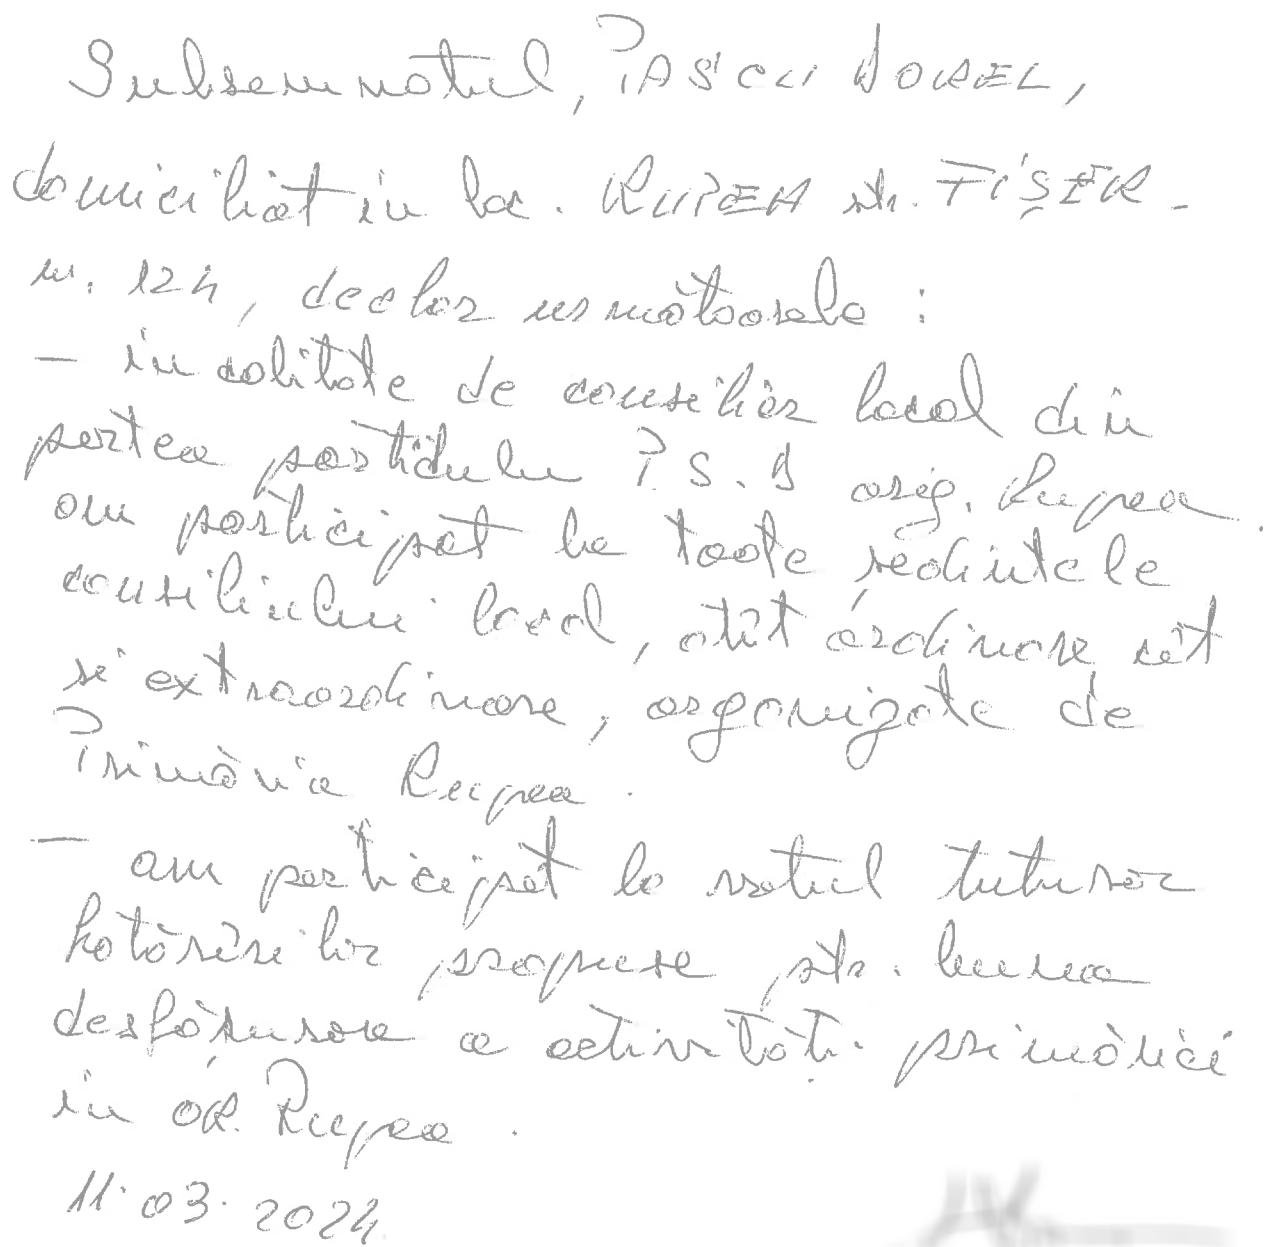 Subsemnatul, PASCU DOREL,
domiciliat in loc. RUPEA str. FIȘER -
nr. 124, declar următoarele :
- in calitate de consilier local din
partea partidului P.S.D org. Rupea
am participat la toate sedintele
consiliului local, atît ordinare cât
si extraordinare, organizate de
Primăria Rupea.
- am participat la votul tuturor
hotărîrilor propuse ptr. buna
desfășurare a activități primăriei
in OR. Rupea.
11.03.2024